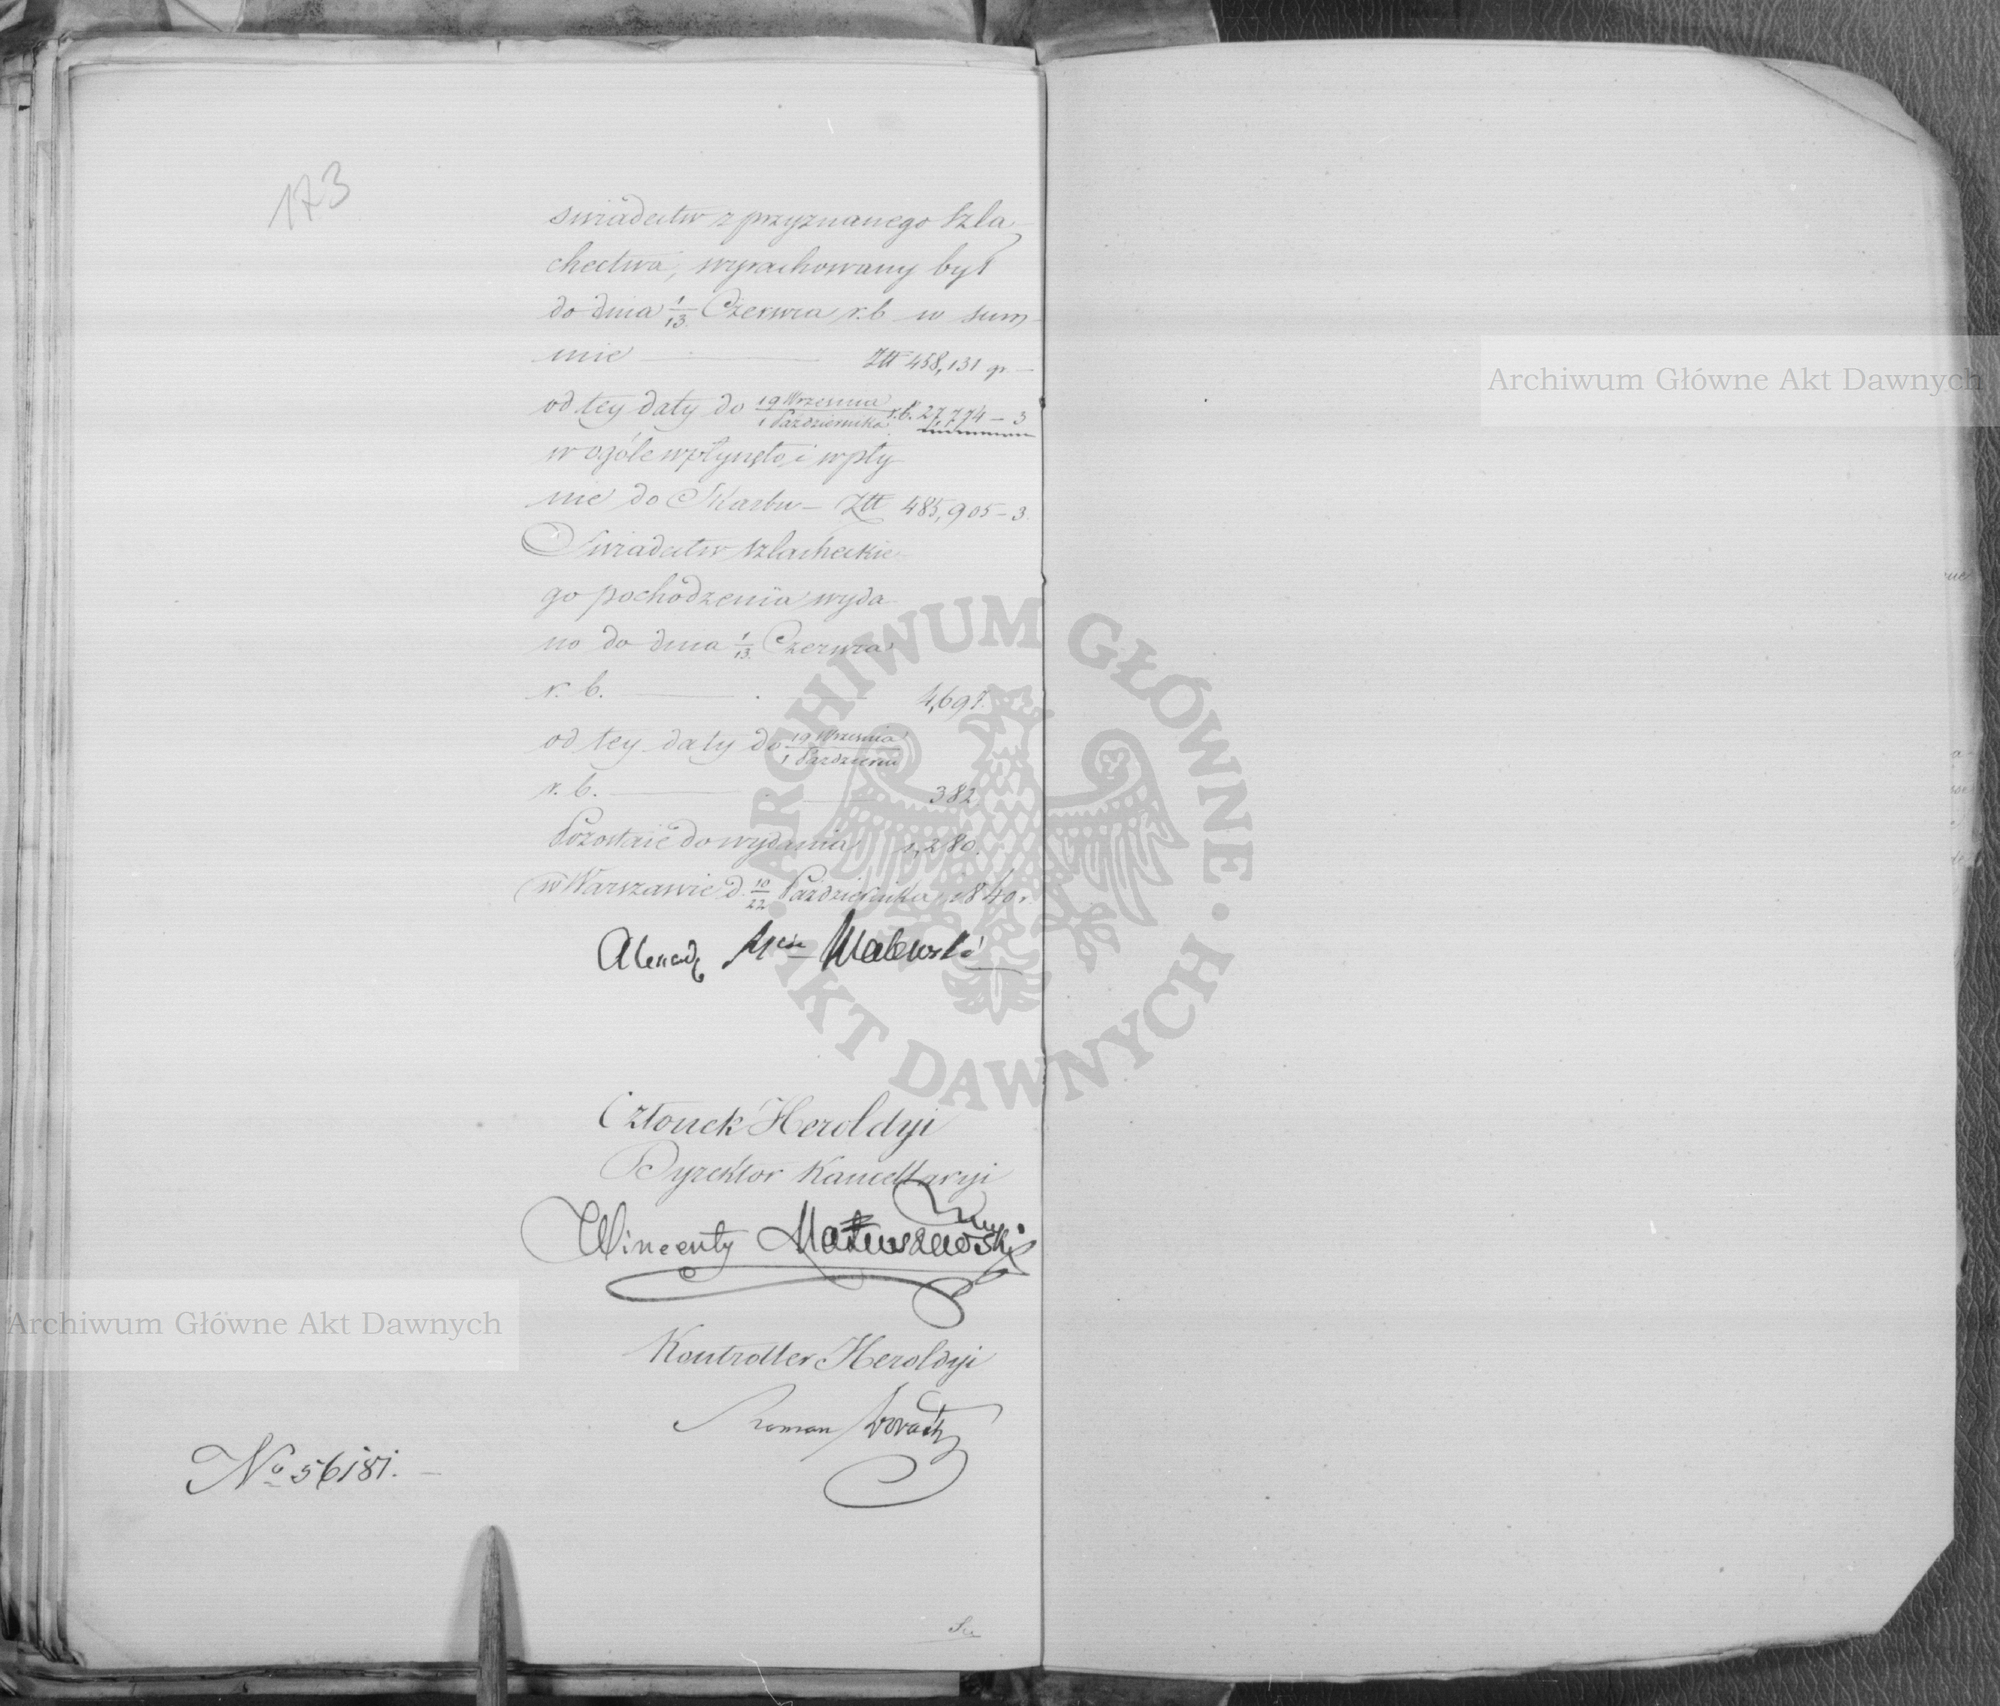 173
swiadectw z przyznanego szla
chectwa, wyrachowany był
do dnia 1/13 Czerwca r.b. w sum
mie — Złt 458,131 gr —
od tey daty do 19 Września / 1 Października r.b. 27,774 – 3
w ogóle wpłynęło i wpły
nie do Skarbu – Złt 485,905 – 3.
Swiadectw szlacheckie
go pochodzenia wyda
no do dnia 1/13 Czerwca
r. b. — 4,697.
od tey daty do 19 Września / 1 Paździer
r. b. — 382
Pozostaie do wydania 1,280.
w Warszawie d. 10/22 Października 1840 r.
Malewski
Członek Heroldyi
Dyrektor Kancellaryi
Wincenty Matuszewski
Kontroller Heroldyi
Roman
No 56181. –
Archiwum Główne Akt Dawnych
Archiwum Główne Akt Dawnych
ARCHIWUM GŁÓWNE · AKT DAWNYCH ·